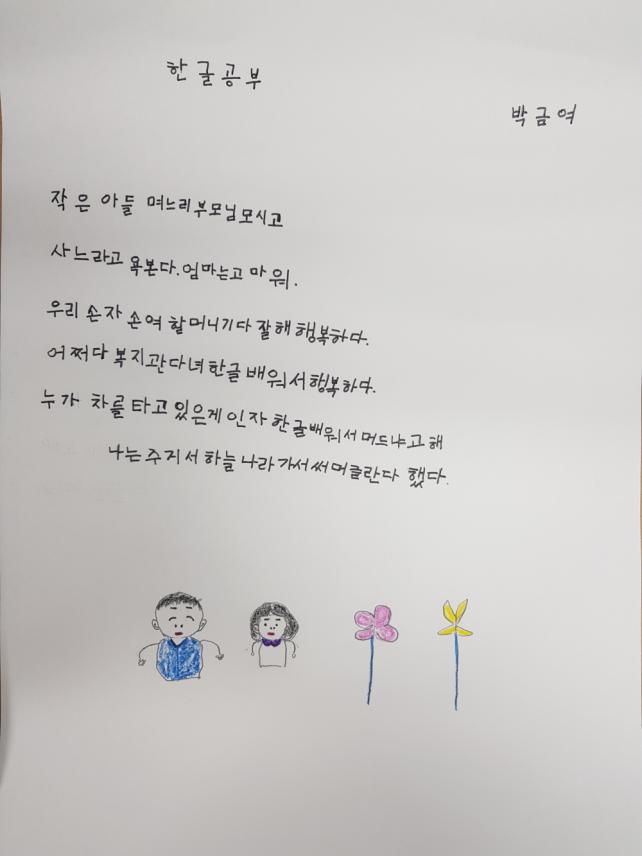 한글공부
박금여
작은 아들 며느리부모님모시고
사느라고 욕본다. 엄마는고 마워.
우리 손자 손여 할머니기다 잘해 행복하다.
어쩌다 복지관다녀 한글 배워서행복하다.
누가 차를 타고 있은게 인자 한글배워서 머드냐고 해
나는주거서 하늘 나라가서써머글란다 했다.